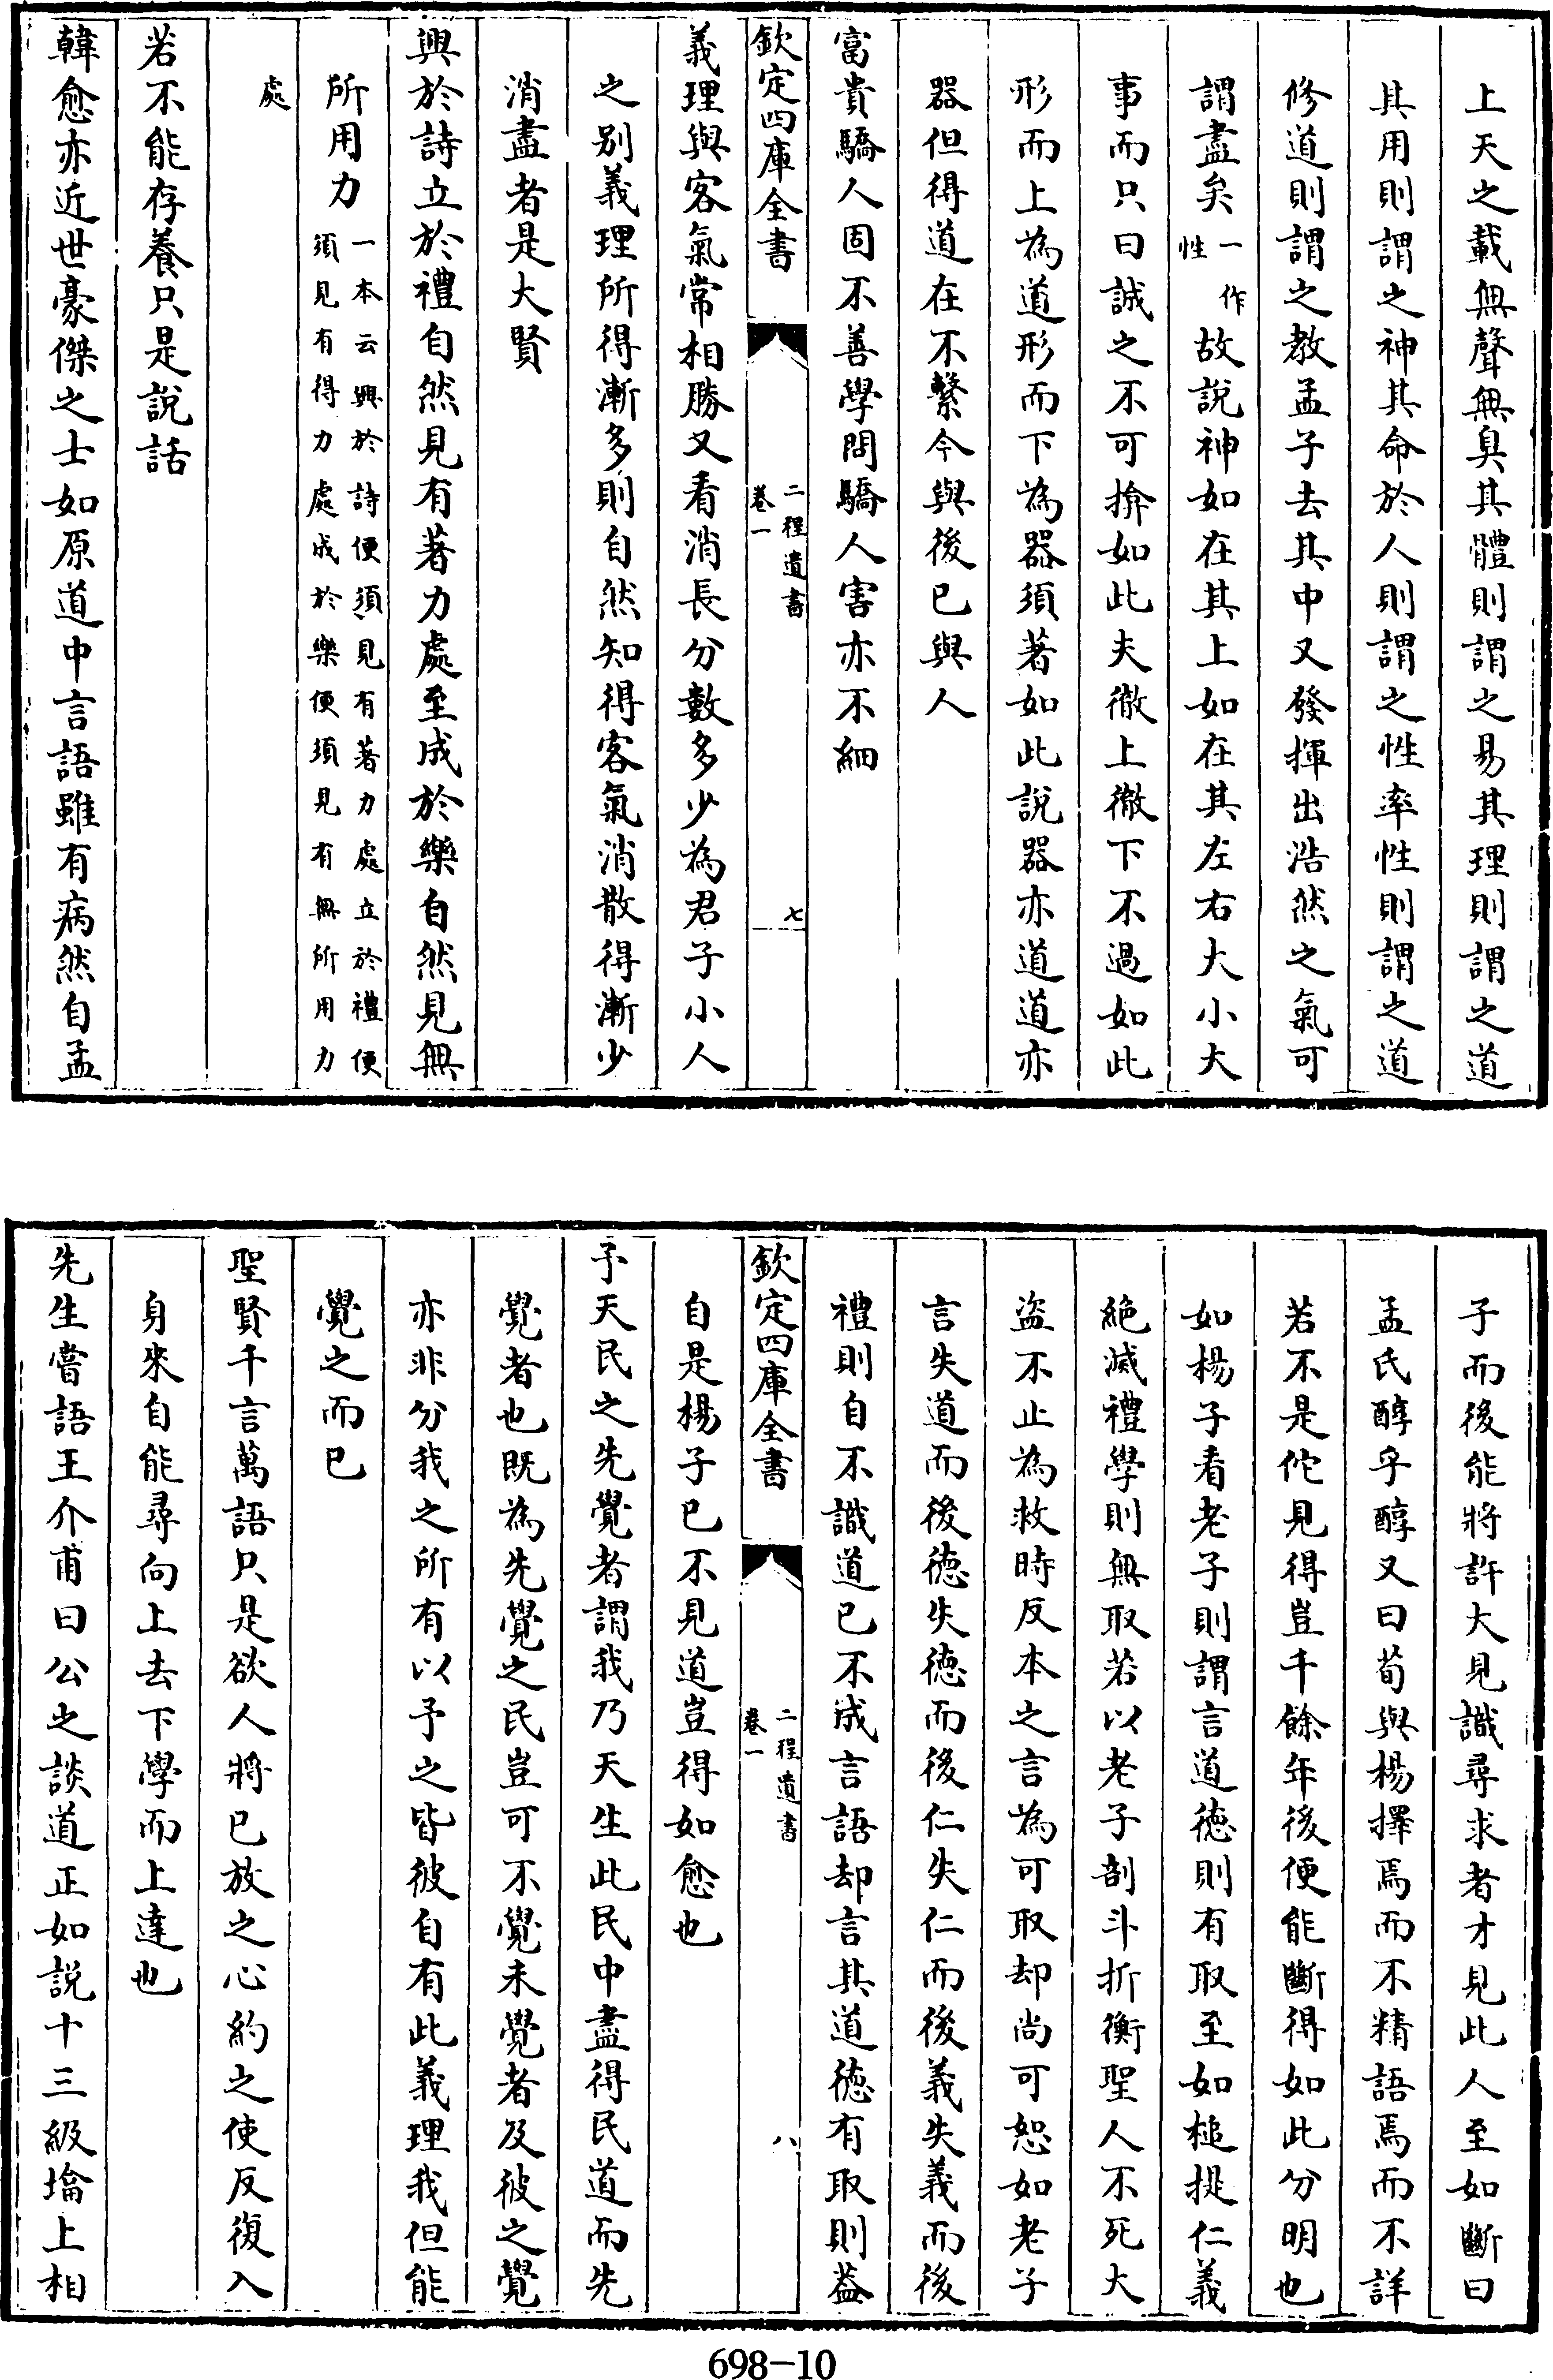 上天之載無聲無臭其體則謂之易其理則謂之道
其用則謂之神其命於人則謂之性率性則謂之道
修道則謂之教孟子去其中又發揮出浩然之氣可
謂盡矣一作性故說神如在其上如在其左右大小大
事而只曰誠之不可揜如此夫徹上徹下不過如此
形而上為道形而下為器須著如此說器亦道道亦
器但得道在不繫今與後已與人
富貴驕人固不善學問驕人害亦不細
欽定四庫全書
二程遺書
卷一
七
義理與客氣常相勝又看消長分數多少為君子小人
之別義理所得漸多則自然知得客氣消散得漸少
消盡者是大賢
興於詩立於禮自然見有著力處至成於樂自然見無
所用力一本云興於詩便須見有著力處立於禮便
須見有得力處成於樂便須見有無所用力
處
若不能存養只是說話
韓愈亦近世豪傑之士如原道中言語雖有病然自孟
子而後能將許大見識尋求者才見此人至如斷曰
孟氏醇乎醇又曰荀與楊擇焉而不精語焉而不詳
若不是佗見得豈千餘年後便能斷得如此分明也
如楊子看老子則謂言道德則有取至如槌提仁義
絶滅禮學則無取若以老子剖斗折衡聖人不死大
盜不止為救時反本之言為可取却尚可恕如老子
言失道而後德失德而後仁失仁而後義失義而後
禮則自不識道已不成言語却言其道德有取則蓋
欽定四庫全書
二程遺書
卷一
八
自是楊子已不見道豈得如愈也
予天民之先覺者謂我乃天生此民中盡得民道而先
覺者也既為先覺之民豈可不覺未覺者及彼之覺
亦非分我之所有以予之皆彼自有此義理我但能
覺之而已
聖賢千言萬語只是欲人將已放之心約之使反復入
身來自能尋向上去下學而上達也
先生嘗語王介甫曰公之談道正如說十三級塔上相
698-10